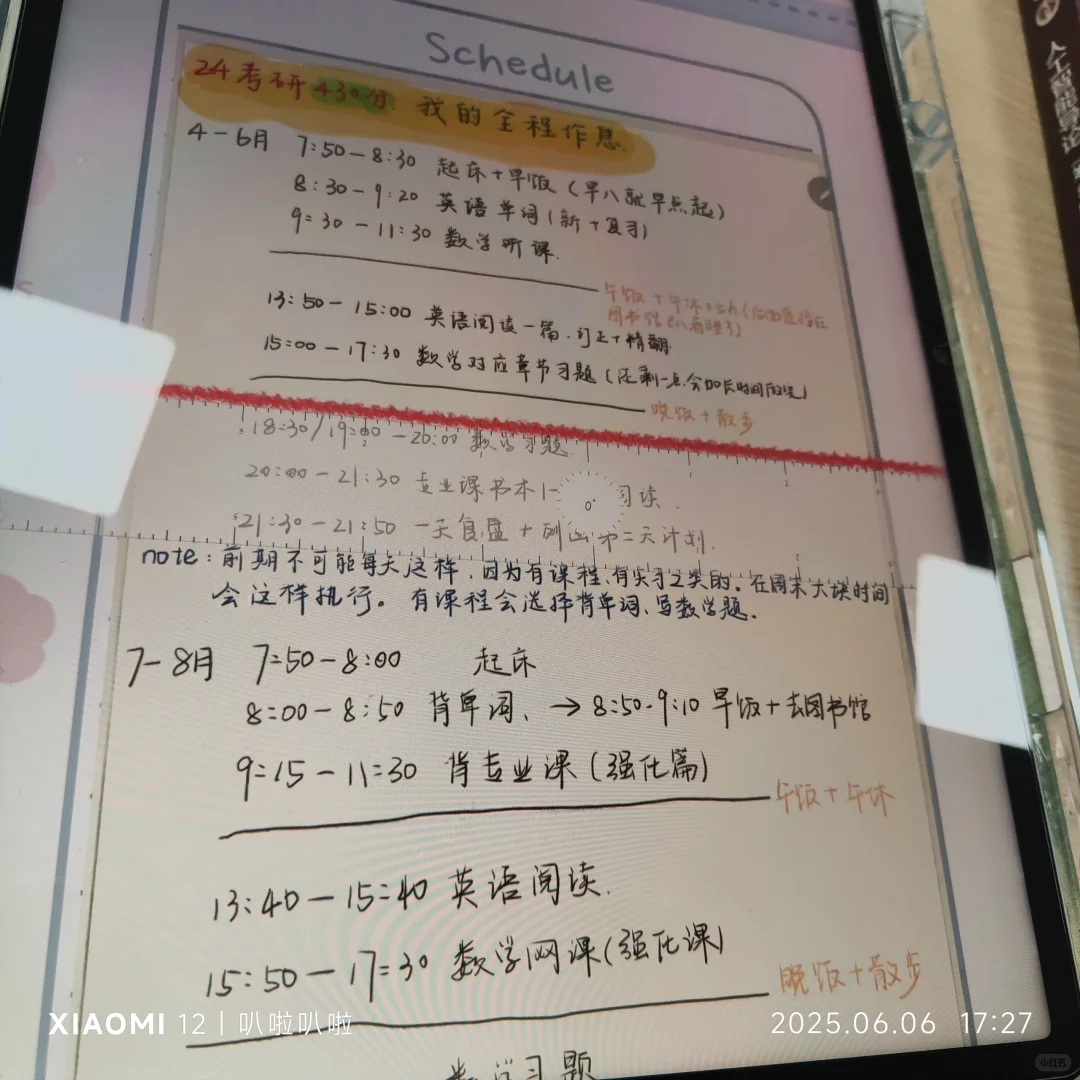 Schedule
24考研430分 我的全程作息.
4-6月 7:50-8:30 起床+早饭(早八就早点起)
8:30-9:20 英语单词(新+复习)
9:30-11:30 数学听课.
午饭+午休
13:50-15:00 英语阅读一篇.订正+精翻.
图书馆
15:00-17:30 数学对应章节习题(还剩一点会加长时间
晚饭+散步
18:30/19:00-20:00 数学习题
20:00-21:30 专业课书本 阅读.
21:30-21:50 一天复盘+列出第二天计划.
note:前期不可能每天这样.因为有课程.有实习之类的.在周末大块时间
会这样执行。有课程会选择背单词、写数学题.
7-8月 7:50-8:00 起床
8:00-8:50 背单词、→8:50-9:10 早饭+去图书馆
9:15-11:30 背专业课(强化篇)
午饭+午休
13:40-15:40 英语阅读.
15:50-17:30 数学网课(强化课)
晚饭+散步
数学习题
XIAOMI 12 | 叭啦叭啦
2025.06.06 17:27
小红书
人工智能导论